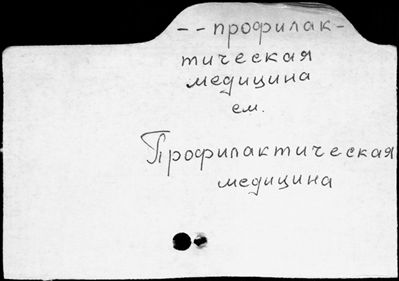 --профилак-
тическая
медицина
см.
Профилактическая
медицина